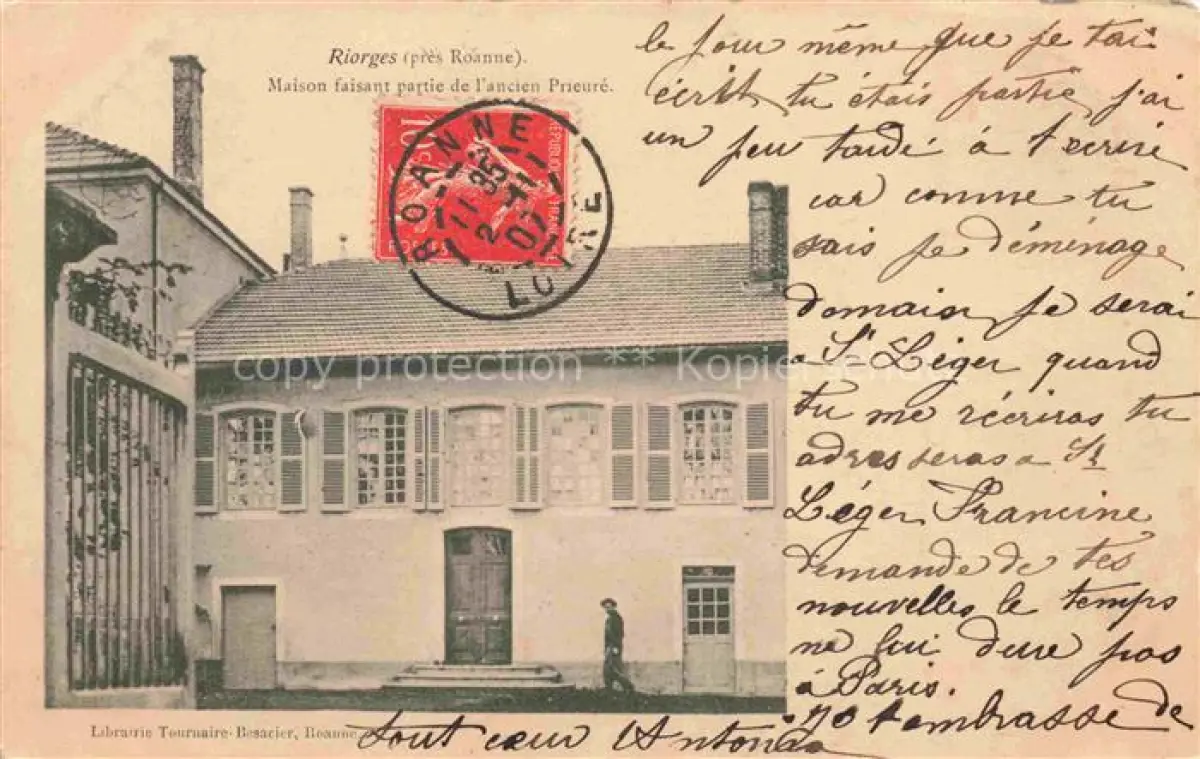 Riorges (près Roanne).
Maison faisant partie de l'ancien Prieuré.
ROANNE
11 35
2 -11
07
LOIRE
10c
le jour même que je tai
écrit tu étais partie j'ai
un peu tardé à t'ecrire
car comme tu
sais je déménage
domain je serai
a St Léger quand
tu me récriras tu
adres seras a St
Léger Francine
demande de tes
nouvelles le temps
ne lui dure pas
à Paris.
Je t'embrasse de
tout cœur Antonia
Librairie Tournaire-Besacier, Roanne
copy protection ** Kopier